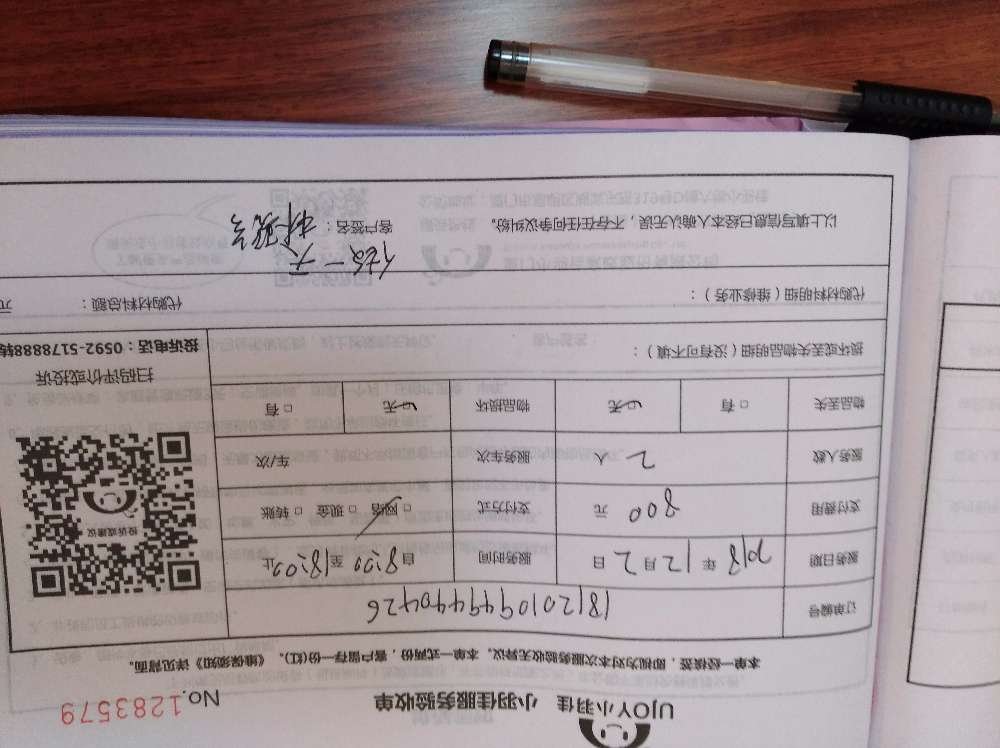 UJOY小羽佳 小羽佳服务验收单 No.1283579
本单一经核签,即视为对本次服务验收无异议。本单一式两份,客户留存一份(红)。《维保须知》详见背面。
订单编号 1812010949440426
服务日期 2018 年 12 月 2 日 服务时间 自 8:00 至 18:00 止
支付费用 800 元 支付方式 ☑ 网络 □ 现金 □ 转账
服务人数 2 人 服务车次 车/次
物品丢失 □ 有 ☑ 无 物品损坏 ☑ 无 □ 有
投诉或建议
扫码评价或投诉
投诉电话:0592-5178888转
损坏或丢失物品明细(没有可不填):
代购材料明细(维修业务): 代购材料总额: 元
以上填写信息已经本人确认无误,不存在任何争议纠纷。 客户签名: